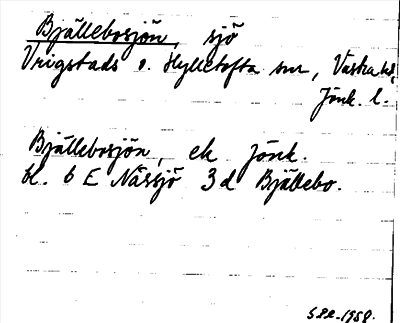 Bjällebosjön, sjö
Vrigstads o. Hylletofta snr, Västra hd,
Jönk. l.
Bjällebosjön, ek Jönk.
bl. 6 E Nässjö 3 d Bjällebo.
1958.